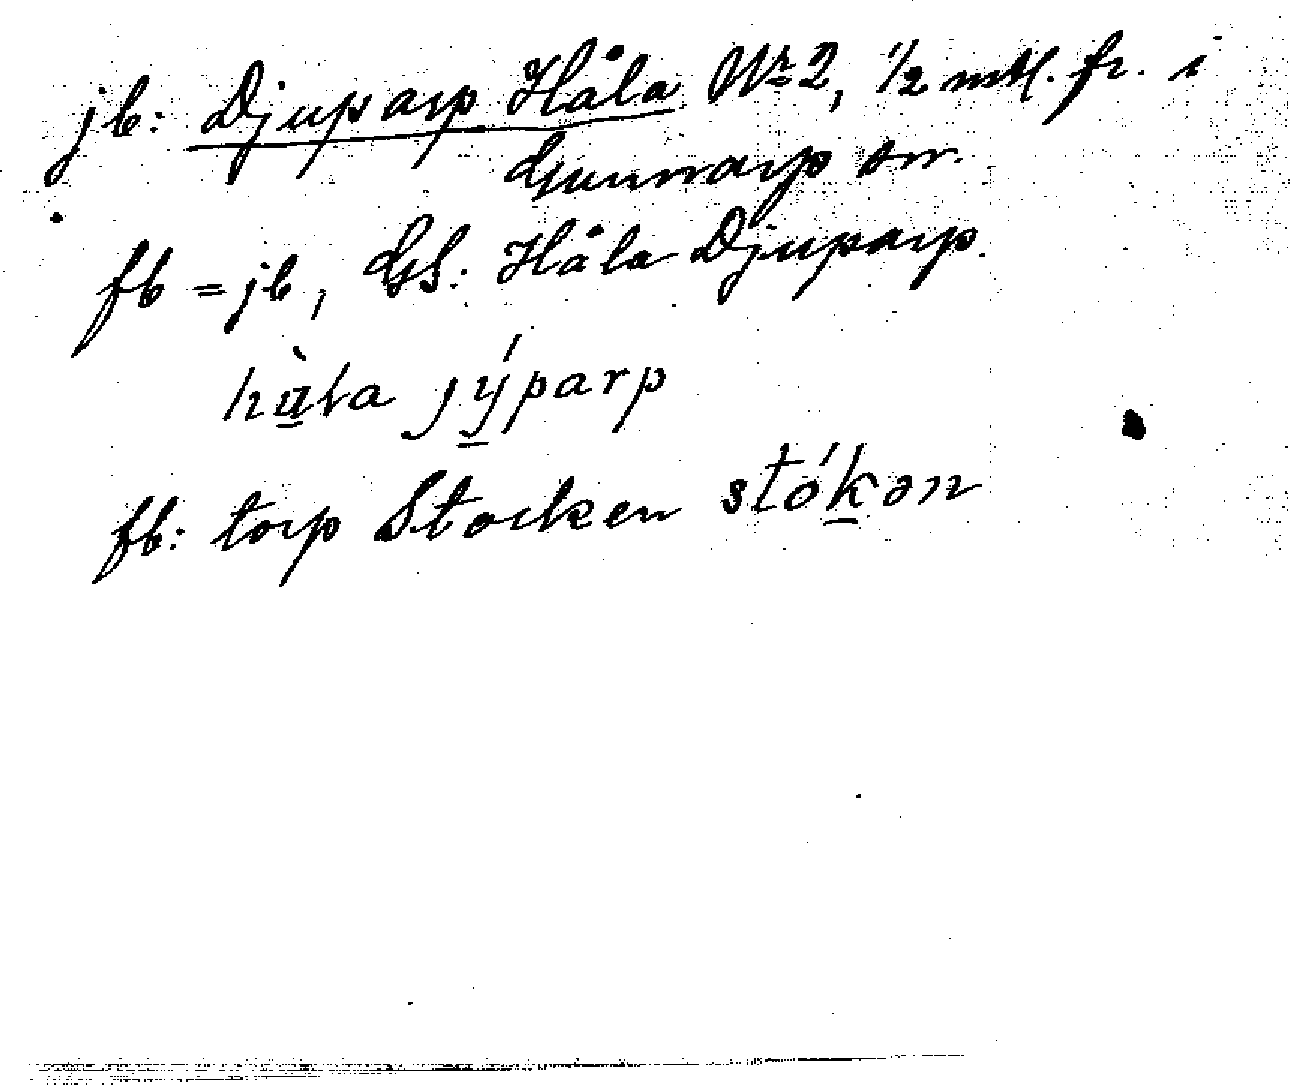 jb: Djuparp Håla Nr 2, 1/2 mtl. fr. i
Gunnarp sn.
fb = jb, GS: Håla Djuparp.
hùla jýparp
fb: torp Stocken stókən